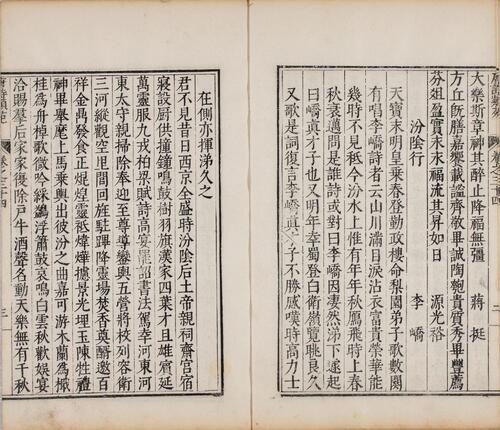 大樂斯章神其醉止降福無疆　蔣挺
方丘既膳嘉饗載謐齊敬畢誠陶匏貴質秀畢豐薦
芬俎盈實末末福流其昇如日　源光裕
汾陰行　李嶠
天寶末明皇乗春登勤政樓命梨園弟子歌數闋
有唱李嶠詩者云山川滿目淚沾衣富貴榮華能
幾時不見秪今汾水上惟有年年秋鴈飛時上春
秋衰適問是誰詩或對曰李嶠因凄然涕下遽起
曰嶠真才子也又明年幸蜀登白衛嶺覽眺良久
又歌是詞復言李嶠真才子不勝感嘆時高力士
在側亦揮涕久之
君不見昔日西京全盛時汾陰后土帝親祠齋宮宿
寢設厨供撞鐘鳴鼓樹羽旗漢家四葉才且雄賔延
萬靈服九戎柏梁賦詩高宴罷詔書法駕幸河東河
東太守親掃除奉迎至尊導鑾輿五營將校列容衛
三河縱觀空里閭回旌駐蹕降靈場焚香奠醑邀百
祥金鼎發食正焜煌靈祇煒燁攄景光埋玉陳牲禮
神畢舉麾上馬乗輿出彼汾之曲嘉可游木蘭為檝
桂為舟櫂歌微吟綵鷁浮簫鼓哀鳴白雲秋歡娛宴
洽賜羣后家家復除戶牛酒聲名動天樂無有千秋
三